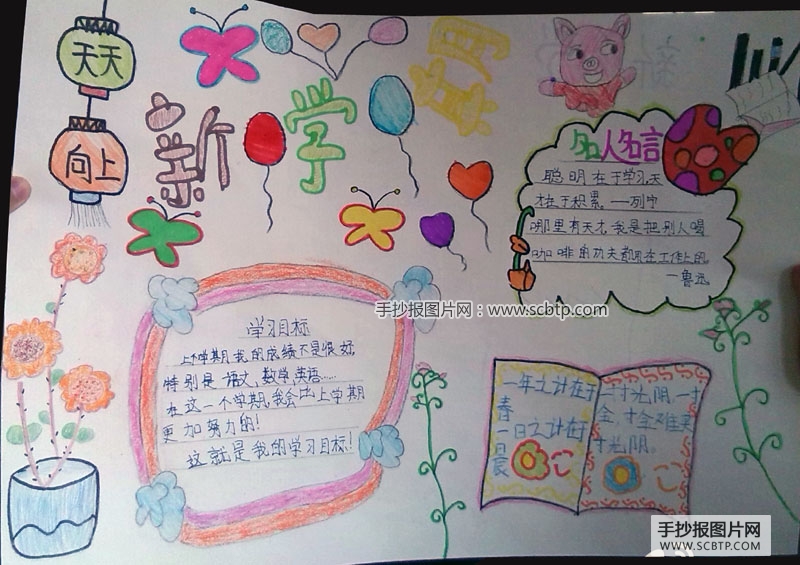 天天
向上
新学期
名人名言
聪明在于学习,天
才在于积累。——列宁
哪里有天才,我是把别人喝
咖啡的功夫都用在工作上的
——鲁迅
手抄报图片网:www.scbtp.com
学习目标
上个学期,我的成绩不是很好,
特别是语文、数学、英语……
在这一个学期,我会比上学期
更加努力的!
这就是我的学习目标!
一年之计在于
春
一日之计在于
晨
一寸光阴一寸
金,寸金难买
寸光阴。
手抄报图片网
WWW.SCBTP.COM